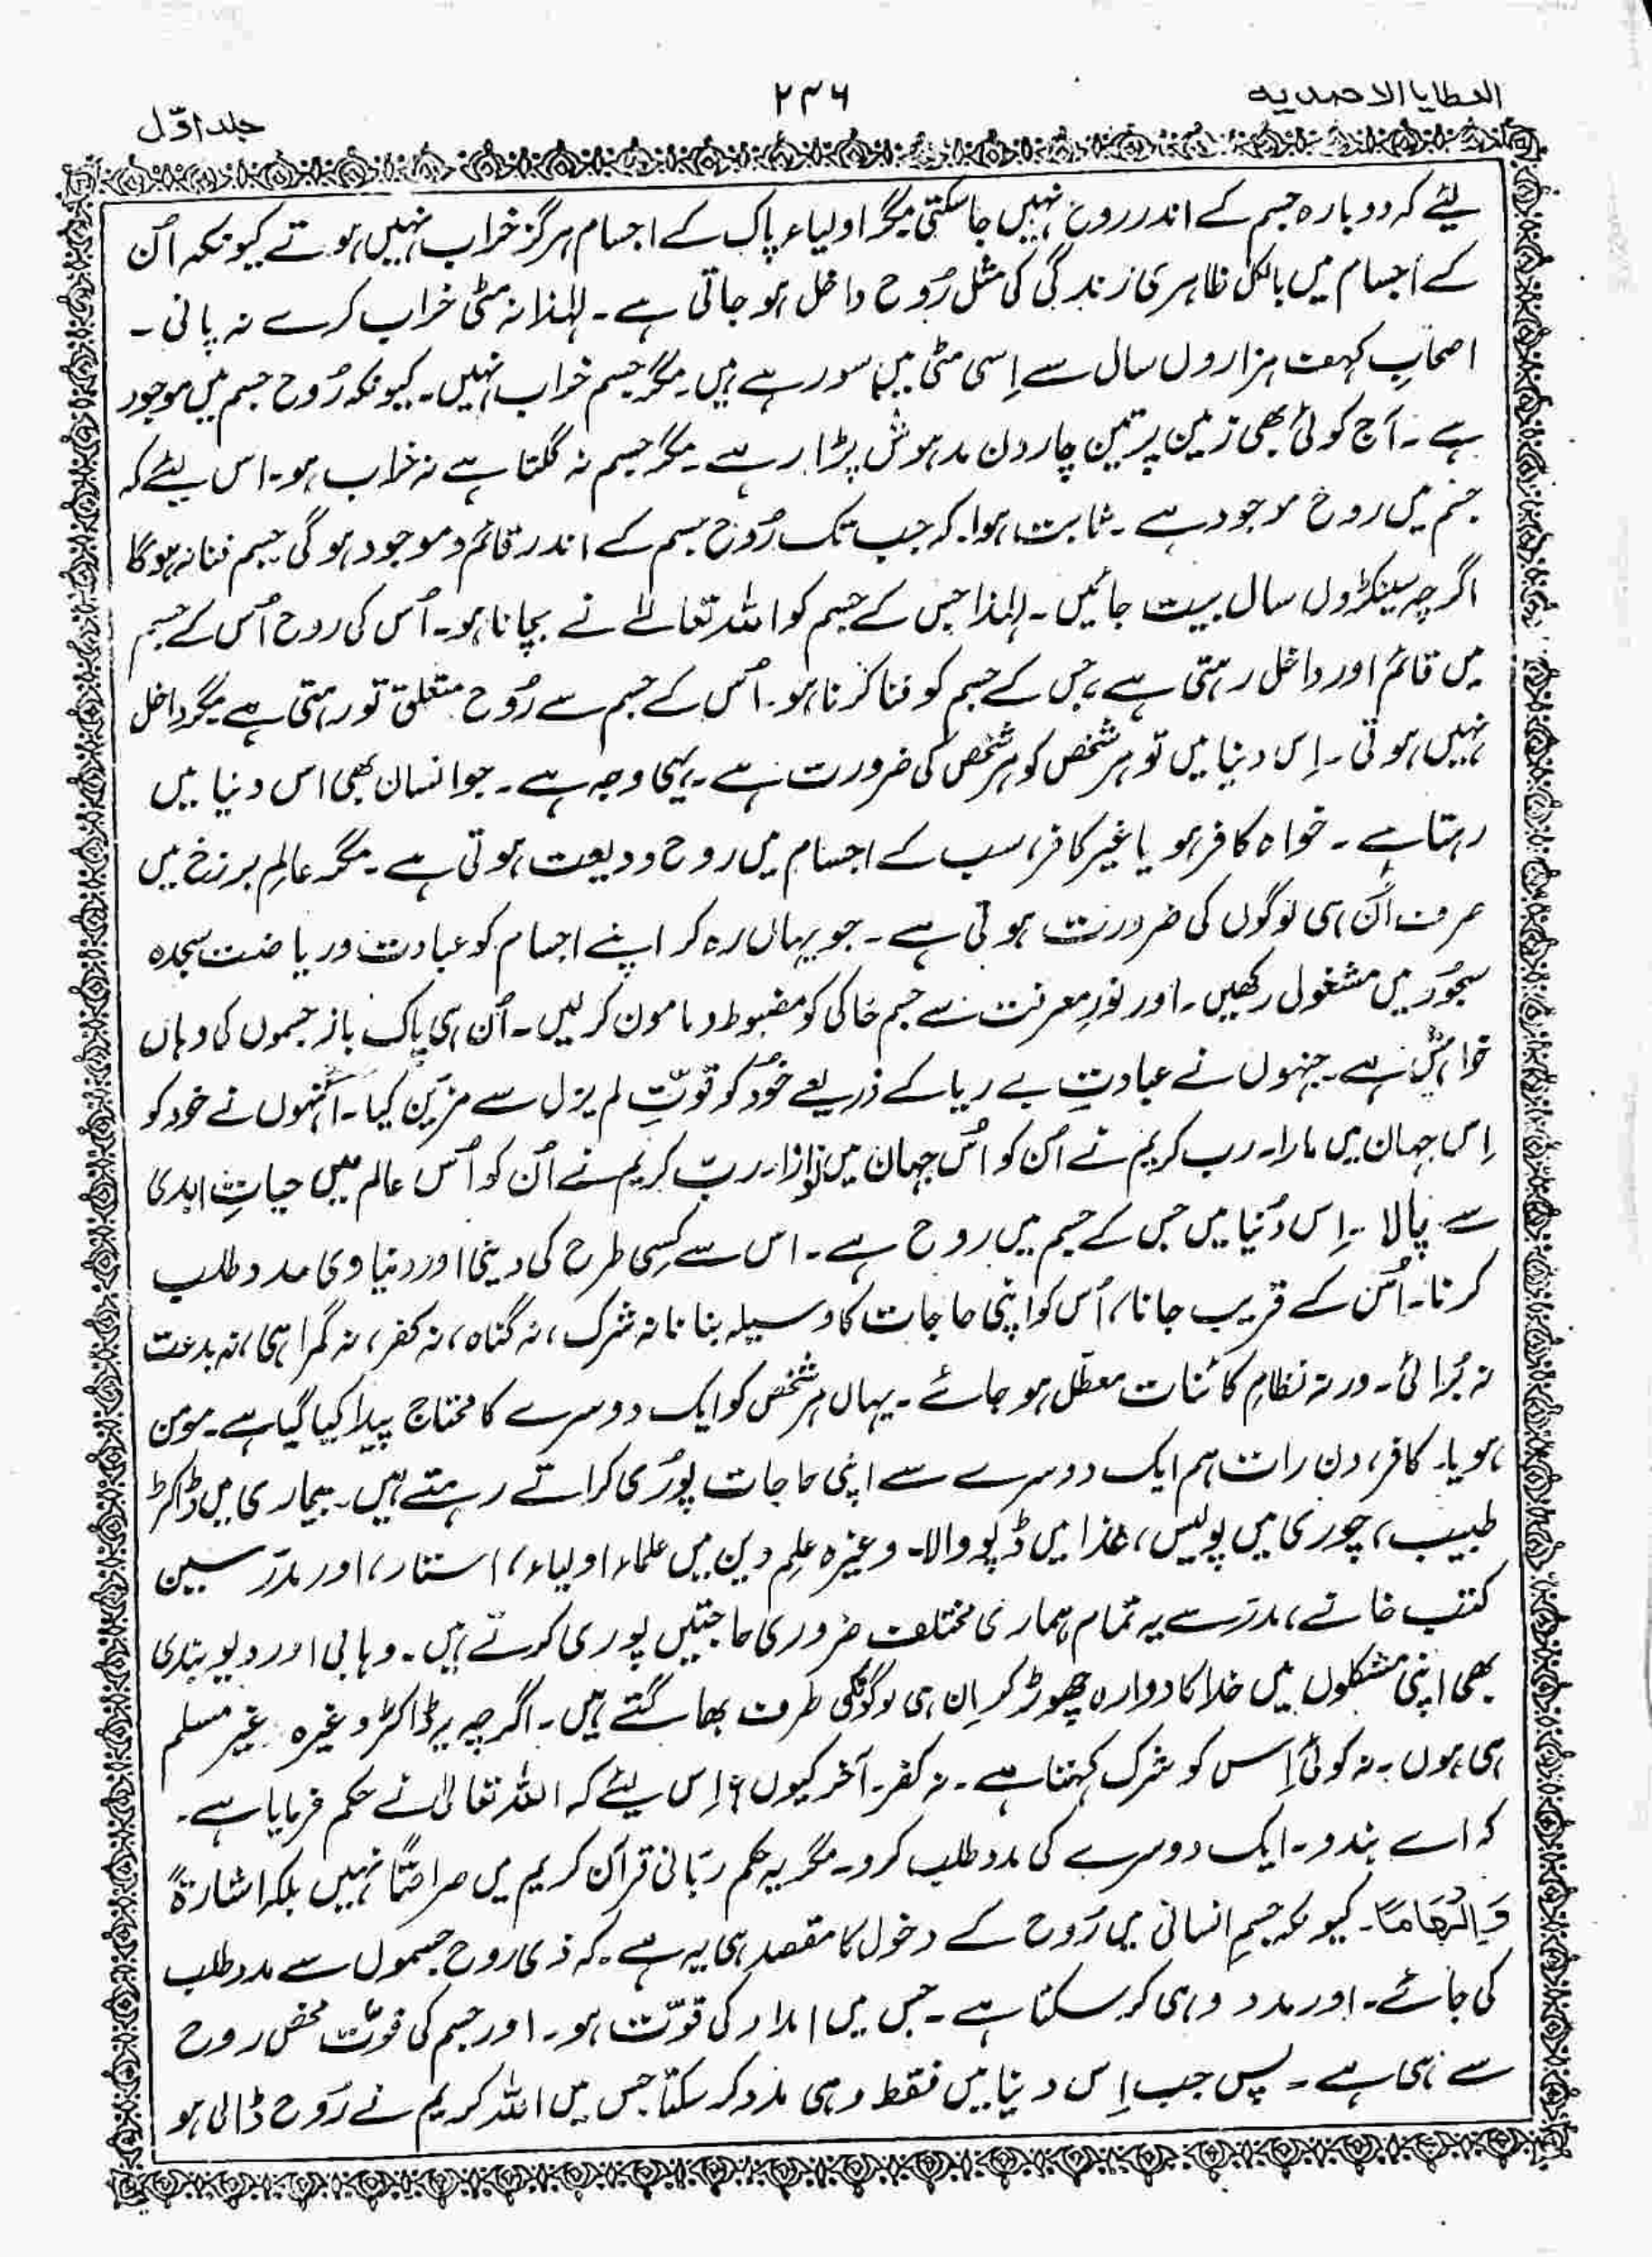 العطایا الاحمدیہ
۲۳۶
جلد اوّل
لئے کہ دوبارہ جسم کے اندر روح نہیں جا سکتی مگر اولیاء پاک کے اجسام ہرگز خراب نہیں ہوتے کیونکہ اُن
کے اجسام میں بالکل ظاہری زندگی کی مثل رُوح داخل ہو جاتی ہے۔ لہٰذا نہ مٹی خراب کرے نہ پانی۔
اصحابِ کہف ہزاروں سال سے اِسی مٹی میں سو رہے ہیں۔ مگر جسم خراب نہیں۔ کیونکہ رُوح جسم میں موجود
ہے۔ آج کوئی بھی زمین پر تین چار دن مدہوش پڑا رہے۔ مگر جسم نہ گلتا ہے نہ خراب ہو۔ اس لیئے کہ
جسم میں روح موجود ہے۔ ثابت ہوا۔ کہ جب تک رُوح جسم کے اندر قائم و موجود ہو گی جسم فنا نہ ہوگا
اگرچہ سینکڑوں سال بیت جائیں۔ لہٰذا جس کے جسم کو اللہ تعالےٰ نے بچانا ہو۔ اُس کی روح اُس کے جسم
میں قائم اور داخل رہتی ہے، جس کے جسم کو فنا کرنا ہو۔ اُس کے جسم سے رُوح متعلق تو رہتی ہے مگر داخل
نہیں ہوتی۔ اِس دنیا میں تو ہر شخص کو ہر شخص کی ضرورت ہے۔ یہی وجہ ہے۔ جو انسان بھی اس دنیا میں
رہتا ہے۔ خواہ کافر ہو یا غیر کافر، سب کے اجسام میں روح ودیعت ہوتی ہے۔ مگر عالمِ برزخ میں
صرف اُن ہی لوگوں کی ضرورت ہوتی ہے۔ جو یہاں رہ کر اپنے اجسام کو عبادت و ریاضت سجدہ
سجُود میں مشغول رکھیں۔ اور نورِ معرفت سے جسم خاکی کو مضبوط و مامون کر لیں۔ اُن ہی پاک باز جسموں کی وہاں
خواہش ہے۔ جنہوں نے عبادتِ بے ریا کے ذریعے خود کو قوّتِ لم یزل سے مزیّن کیا۔ اُنہوں نے خود کو
اِس جہان میں مارا۔ رب کریم نے اُن کو اُس جہان میں نوازا۔ ربّ کریم نے اُن کو اُس عالم میں حیاتِ ابدی
سے پالا۔ اِس دُنیا میں جس کے جسم میں روح ہے۔ اس سے کِسی طرح کی دینی اور دنیاوی مدد طلب
کرنا۔ اُس کے قریب جانا، اُس کو اپنی حاجات کا وسیلہ بنانا نہ شرک، نہ گناہ، نہ کفر، نہ گمراہی، نہ بدعت
نہ بُرائی۔ ورنہ نظامِ کائنات معطّل ہو جائے۔ یہاں ہر شخص کو ایک دوسرے کا محتاج پیدا کیا گیا ہے۔ مومن
ہو یا۔ کافر، دن رات ہم ایک دوسرے سے اپنی حاجات پوُری کراتے رہتے ہیں۔ بیماری میں ڈاکٹر
طبیب، چوری میں پولیس، غذا میں ڈپو والا۔ وغیرہ علمِ دین میں علماء اولیاء، استاد، اور مدرّسین
کتب خانے، مدرسے یہ تمام ہماری مختلف ضروری حاجتیں پوری کرتے ہیں۔ وہابی اور دیوبندی
بھی اپنی مشکلوں میں خدا کا دوارہ چھوڑ کر اِن ہی لوگونکی طرف بھاگتے ہیں۔ اگرچہ یہ ڈاکٹر وغیرہ غیر مسلم
ہی ہوں۔ نہ کوئی اِس کو شرک کہتا ہے۔ نہ کفر۔ آخر کیوں؟ اِس لیئے کہ اللہ تعالیٰ نے حکم فرمایا ہے۔
کہ اے بندو۔ ایک دوسرے کی مدد طلب کرو۔ مگر یہ حکم ربّانی قرآن کریم میں صراحتًا نہیں بلکہ اشارۃً
وَ اِلْہَامًا۔ کیونکہ جسمِ انسانی میں رَوح کے دخول کا مقصد ہی یہ ہے۔ کہ ذی روح جسموں سے مدد طلب
کی جائے۔ اور مدد وہی کر سکتا ہے۔ جس میں امداد کی قوّت ہو۔ اور جسم کی قوّت محض روح
سے ہی ہے۔ پس جب اِس دنیا میں فقط وہی مدد کر سکتا جس میں اللہ کریم نے رُوح ڈالی ہو